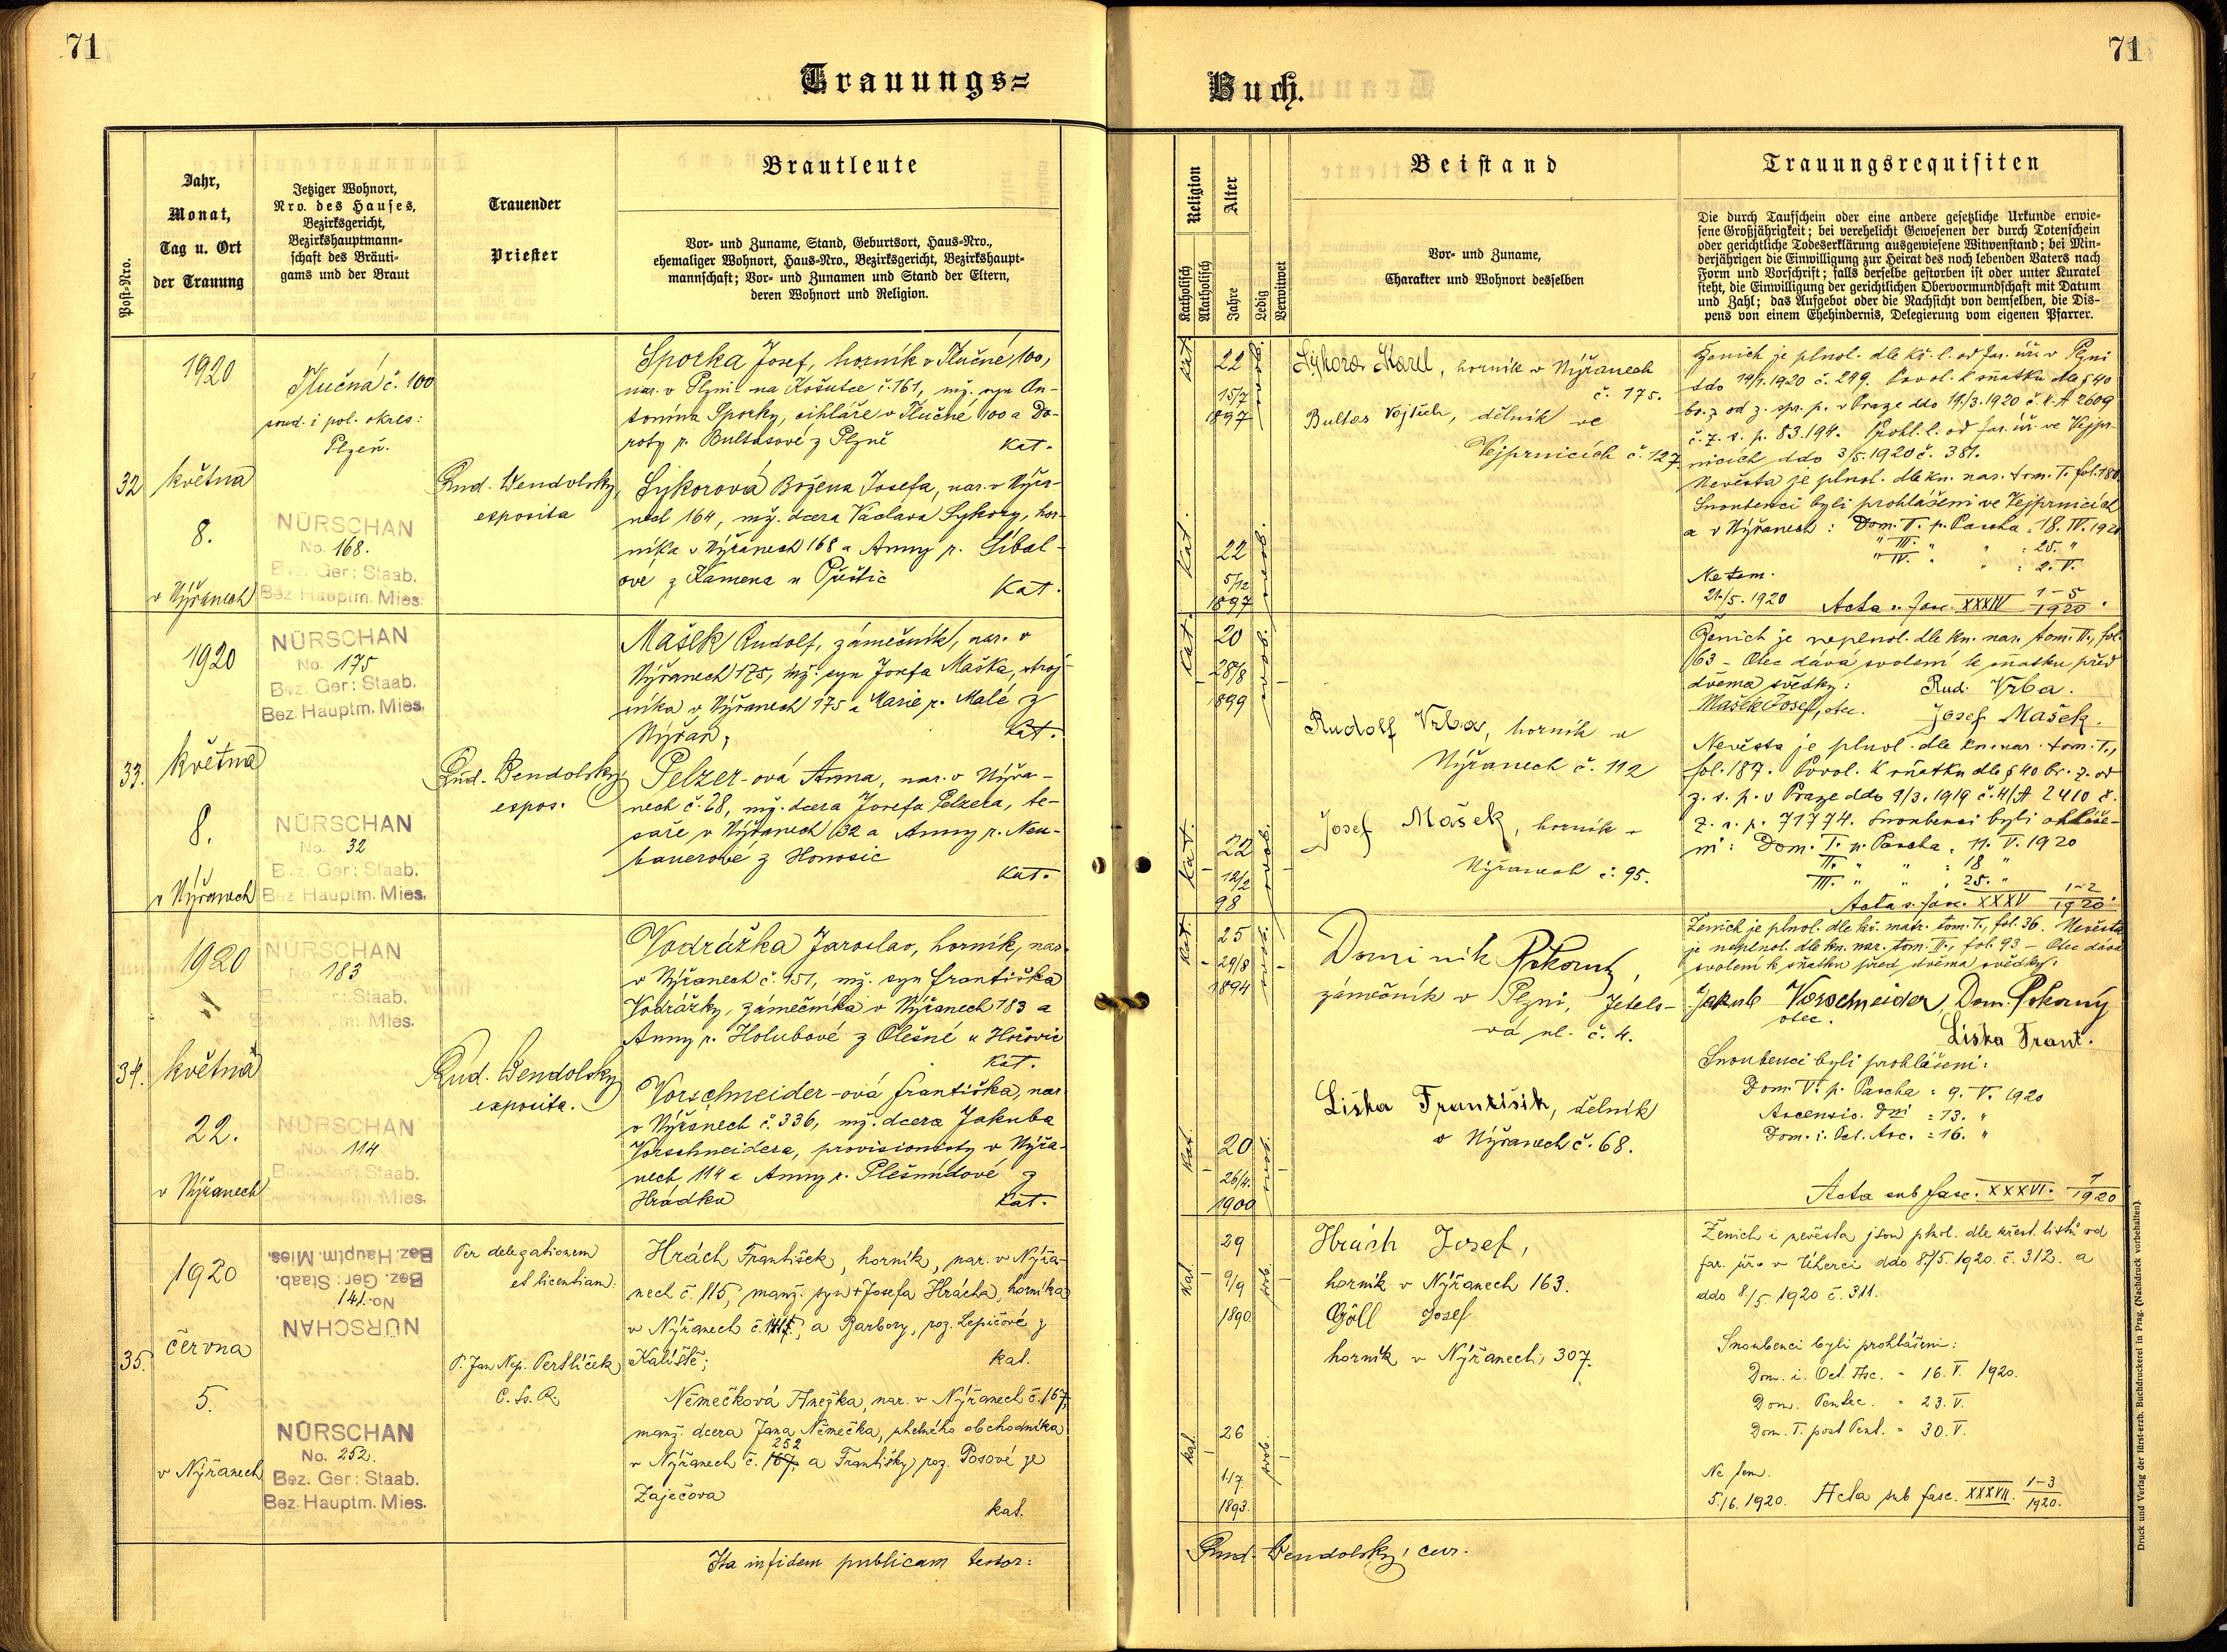 71
71
Trauungs=
Buch.
Post-Nro.
Jahr,
Monat,
Tag u. Ort
der Trauung
Jetziger Wohnort,
Nro. des Hauses,
Bezirksgericht,
Bezirkshauptmann-
schaft des Bräuti-
gams und der Braut
Trauender
Priester
Brautleute
Vor- und Zuname, Stand, Geburtsort, Haus-Nro.,
ehemaliger Wohnort, Haus-Nro., Bezirksgericht, Bezirkshaupt-
mannschaft; Vor- und Zunamen und Stand der Eltern,
deren Wohnort und Religion.
Religion
Katholisch
Akatholisch
Alter
Jahre
Ledig
Verwitwet
Beistand
Vor- und Zuname,
Charakter und Wohnort desselben
Trauungsrequisiten
Die durch Taufschein oder eine andere gesetzliche Urkunde erwie-
sene Großjährigkeit; bei verehelicht Gewesenen der durch Totenschein
oder gerichtliche Todeserklärung ausgewiesene Witwenstand; bei Min-
derjährigen die Einwilligung zur Heirat des noch lebenden Vaters nach
Form und Vorschrift; falls derselbe gestorben ist oder unter Kuratel
steht, die Einwilligung der gerichtlichen Obervormundschaft mit Datum
und Zahl; das Aufgebot oder die Nachsicht von demselben, die Dis-
pens von einem Ehehindernis, Delegierung vom eigenen Pfarrer.
32
1920
května
8.
v Nýřanech
Tlučná č. 100
soud. i pol. okres:
Plzeň.
NÜRSCHAN
No. 168.
Bez. Ger: Staab.
Bez Hauptm. Mies.
Rud. Wendolský,
exposita
Sporka Josef, horník v Tlučné 100,
nar. v Plzni na Košutce č. 161, mž. syn An-
tonína Sporky, cihláře v Tlučné 100 a Do-
roty r. Bultasové z Plzně
kat.
Sykorová Božena Josefa, nar. v Nýřa-
nech 164, mž. dcera Václava Sykory, hor-
níka v Nýřanech 168 a Anny r. Síbal-
ové z Kamena u Přeštic
kat.
kat.
22
15/7
1897
svob.
kat.
22
5/12
1897
svob.
Sýkora Karel, horník v Nýřanech
č. 175.
Bultas Vojtěch, dělník ve
Vejprnicích č. 127
Ženich je plnol. dle kř. l. od far. úř. v Plzni
ddo 14/1. 1920 č. 249. Povol. k sňatku dle § 40
br. z. od z. spr. p. v Praze ddo 19/3. 1920 č. 4-A 2609
č. z. s. p. 83.194. Prohl. l. od far. úř. ve Vejpr-
nicích ddo 3/5. 1920 č. 381.
Nevěsta je plnol. dle kn. nar. tom. I. fol. 180
Snoubenci byli prohlášeni ve Vejprnicích
a v Nýřanech: Dom. II. p. Pascha = 18. IV. 1920
" III. " " : 25. "
" IV. " " : 2. V.
Ne tem.
21./5. 1920 Acta s. fasc. XXXIV 1-5/1920.
33.
1920
května
8.
v Nýřanech
NÜRSCHAN
No. 175
Bez. Ger: Staab.
Bez Hauptm. Mies.
NÜRSCHAN
No. 32
Bez. Ger: Staab.
Bez Hauptm. Mies.
Rud. Wendolský
expos.
Mašek Rudolf, zámečník, nar. v
Nýřanech 175, mž. syn Josefa Maška, stroj-
níka v Nýřanech 175 a Marie r. Malé z
Nýřan;
kat.
Pelzer-ová Anna, nar. v Nýřa-
nech č. 28, mž. dcera Josefa Pelzera, te-
saře v Nýřanech 32 a Anny r. Neu-
bauerové z Honosic
kat.
kat.
20
28/8
1899
svob.
kat.
22
12/2
98
svob.
Rudolf Vrba, horník v
Nýřanech č. 112
Josef Mašek, horník v
Nýřanech č. 95.
Ženich je neplnol. dle kn. nar. tom. II., fol.
63 - Otec dává svolení k sňatku před
dvěma svědky: Rud. Vrba.
Mašek Josef, otec. Josef Mašek.
Nevěsta je plnol. dle kn. nar. tom. I.,
fol. 187. Povol. k sňatku dle § 40 br. z. od
z. s. p. v Praze ddo 9/3. 1919 č. 4/A 2410 č.
z. s. p. 71774. Snoubenci byli ohláše-
ni: Dom. I. p. Pascha = 11. V. 1920
II. " " = 18 "
III. " " = 25. "
Acta s. fasc. XXXV 1-2/1920.
34.
1920
května
22.
v Nýřanech
NÜRSCHAN
183
Staab.
Mies.
NÜRSCHAN
No. 114
Bez. Ger: Staab.
Bez Hauptm. Mies.
Rud. Wendolský
exposita.
Vodrážka Jaroslav, horník, nar.
v Nýřanech č. 151, mž. syn Františka
Vodrážky, zámečníka v Nýřanech 183 a
Anny r. Holubové z Olešné u Hořovic
kat.
Vorschneider-ová Františka, nar.
v Nýřanech č. 336, mž. dcera Jakuba
Vorschneidera, provisionisty v Nýřa-
nech 114 a Anny r. Plešmídové z
Hrádku
kat.
kat.
25
29/8
1894
svob.
kat.
20
26/4.
1900
svob.
Dominik Pokorný,
zámečník v Plzni, Jetelo-
vá ul. č. 4.
Liška František, dělník
v Nýřanech č. 68.
Ženich je plnol. dle kř. matr. tom. I., fol. 36. Nevěsta
je neplnol. dle kn. nar. tom. II., fol. 93 - Otec dává
svolení k sňatku před dvěma svědky:
Jakub Vorschneider, Dom. Pokorný
otec.
Liška Frant.
Snoubenci byli prohlášeni:
Dom. V. p. Pascha = 9. V. 1920
Ascensio. Dni = 13. "
Dom. i. Oct. Asc. = 16. "
Acta sub fasc. XXXVI. 1/1920
35.
1920
června
5.
v Nýřanech
NÜRSCHAN
No. 141.
Bez. Ger: Staab.
Bez. Hauptm. Mies.
NÜRSCHAN
No. 252.
Bez. Ger: Staab.
Bez. Hauptm. Mies.
Per delegationem
et licentiam.
P. Jan Nep. Pertlíček
C. Ss. R.
Hrách František, horník, nar. v Nýřa-
nech č. 115, manž. syn + Josefa Hrácha, horníka
v Nýřanech č. 141, a Barbory, roz. Lepičové z
Kaliště;
kat.
Němečková Anežka, nar. v Nýřanech č. 167,
manž. dcera Jana Němečka, uhelného obchodníka
252
v Nýřanech č. 167, a Františky roz. Posové ze
Zaječova
kat.
kat.
29
9/9
1890
svob.
kat.
26
1./7.
1893.
svob.
Hrách Josef,
horník v Nýřanech 163.
Göll Josef
horník v Nýřanech, 307.
Ženich i nevěsta jsou plnol. dle křest. listů od
far. úřa v Úherci ddo 8./5. 1920. č. 312. a
ddo 8./5. 1920 č. 311.
Snoubenci byli prohlášeni:
Dom. i. Oct. Asc. = 16. V. 1920.
Dom. Pentec. = 23. V.
Dom. I. post Pent. = 30. V.
Ne tem.
5./6. 1920. Acta sub fasc. XXXVII. 1-3/1920.
Ita in fidem publicam testor:
Rud. Wendolský, cur.
Druck und Verlag der fürst-erzb. Buchdruckerei in Prag. (Nachdruck vorbehalten)